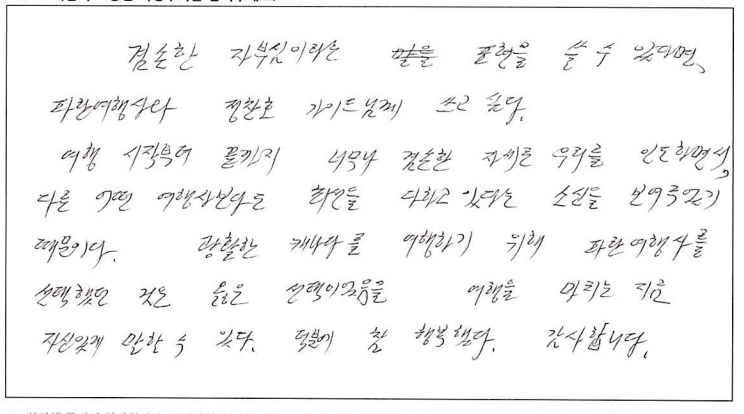 겸손한 자부심이라는 말을 표현을 쓸 수 있다면,
파란여행사와 정찬호 가이드님께 쓰고 싶다.
여행 시작부터 끝까지 너무나 겸손한 자세로 우리를 인도하면서,
다른 어떤 여행사보다도 최선을 다하고 있다는 소신을 보여주었기
때문이다. 광활한 캐나다를 여행하기 위해 파란여행사를
선택했던 것은 옳은 선택이었음을 여행을 마치는 지금
자신있게 말할 수 있다. 덕분에 참 행복했다. 감사합니다.